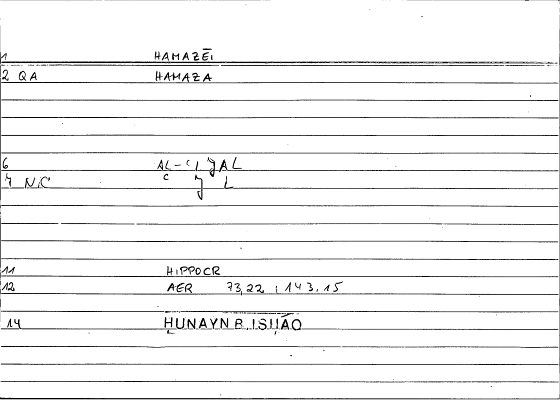 1 HAMAZĒI
2 QA HAMAZA
6 AL-ʿIJAL
7 N.C C J L
11 HIPPOCR
12 AER 73,22 ; 143.15
14 ḤUNAYN B. ISḤĀQ